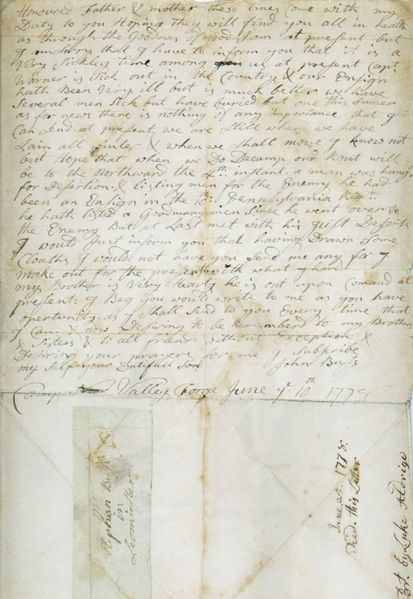 Honoured Father & mother these lines come with my
Duty to you Hoping they will find you all in health
as through the Goodness of god I am at present but
I am sorry that I have to inform you that it is a
Very Sickley time among us at present Capt
Warner is Sick out in the Country & our Ensign
hath Been Very ill but is much better we have
Several men Sick but have buried but one this sumer
as for news there is nothing of any importance that I
Can Send at present, we are Still where we have
Lain all & when we Shall move I know not
but I hope that when we Do Decamp our Rout will
be to the Northward the 4th instant a man was hang
for Desertion & listing men for the Enemy he had
been an Ensign in the 10th Pennsylvania Regt
he hath listed a Good many men Since he went over to
the Enemy But at Last met with his just Deserts
I wout just inform you that having Drawn Some
Cloaths I would not have you Send me any for I
make out for the present with what I have
Brother is Very Hearty he is out upon Comand at
present: I Beg you would write to me as you have
opertunity as I shall Send to you Every time that
I Can, & now Desiring to be Remembered to my Brothers
& Sisters & to all friends without Exception &
Desiring your prayers for me I Subscribe
my Self your Dutifull Son John Buss
Camp Valley Forge June ye 10th 1778
Mr
Stephen Buss
in
Leominster
June 1778
Recd. this Letter
by Luke Aldrige